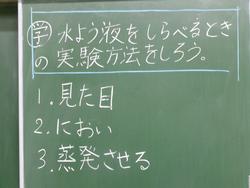 学 水よう液をしらべるとき
の 実験方法をしろう。
1.見た目
2.におい
3.蒸発させる